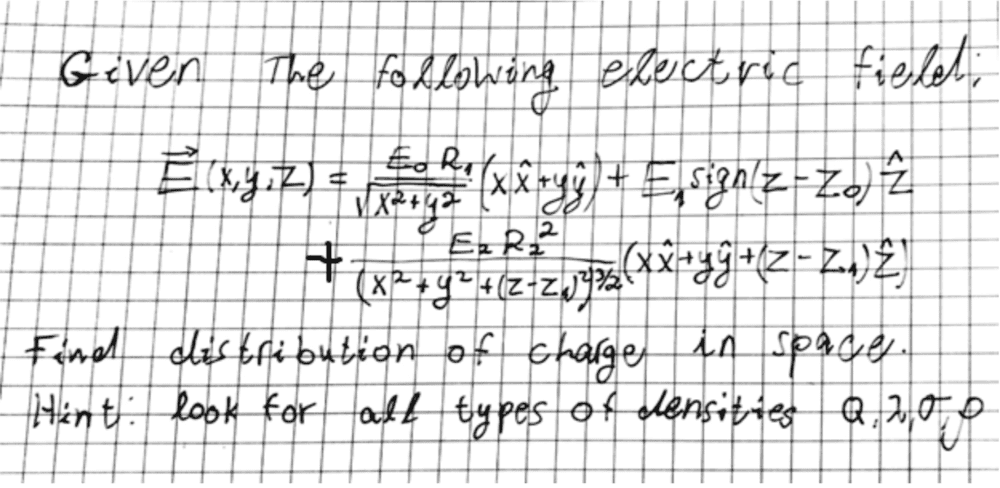 Given The following electric field:
E⃗(x,y,z) = E₀R₁/√(x²+y²) (xx̂+yŷ) + E₁sign(z-z₀)ẑ
+ E₂R₂²/(x²+y²+(z-z₁)²)^3/2 (xx̂+yŷ+(z-z₁)ẑ)
Find distribution of charge in space.
Hint: look for all types of densities Q,λ,σ,ρ